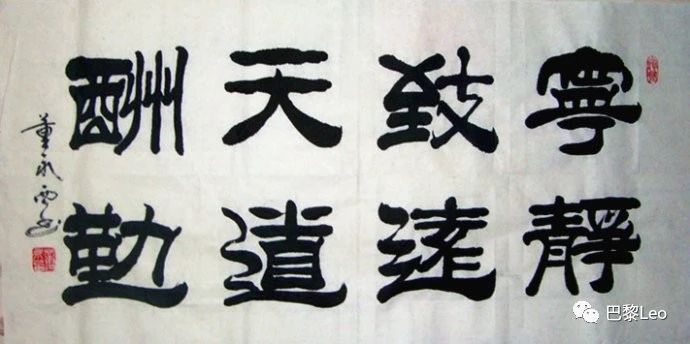 寧靜
致遠
天道
酬勤
巴黎Leo